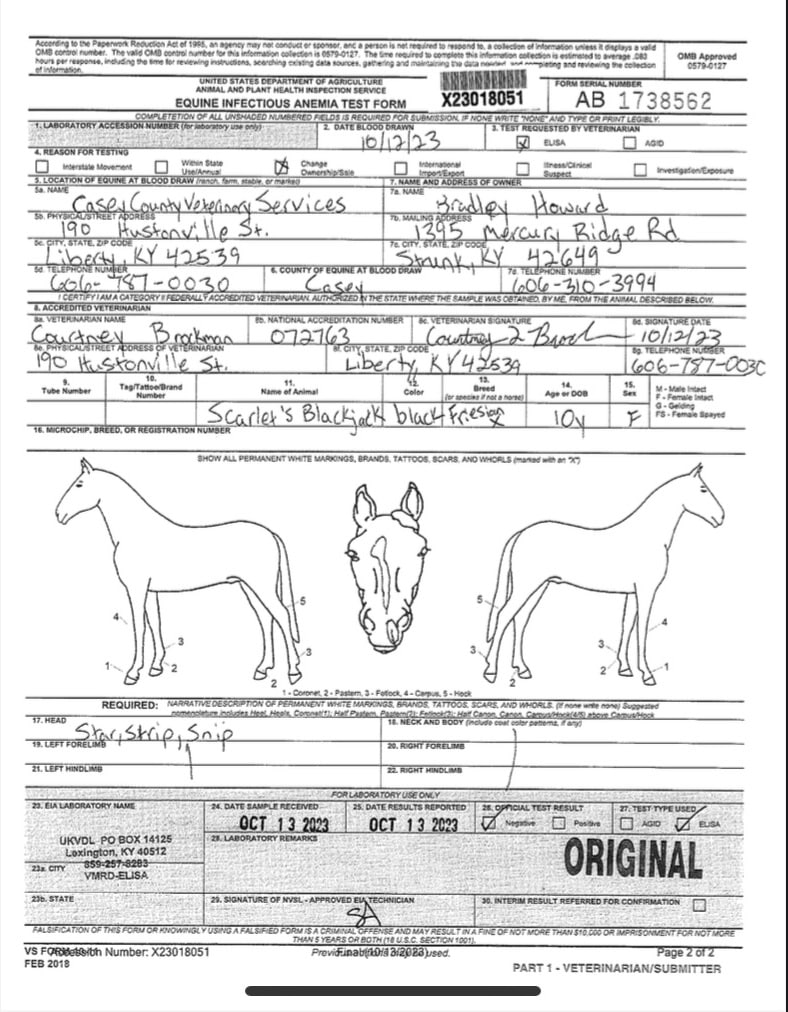 According to the Paperwork Reduction Act of 1995, an agency may not conduct or sponsor, and a person is not required to respond to, a collection of information unless it displays a valid
OMB control number. The valid OMB control number for this information collection is 0579-0127. The time required to complete this information collection is estimated to average .083
hours per response, including the time for reviewing instructions, searching existing data sources, gathering and maintaining the data needed and completing and reviewing the collection
of information.
OMB Approved
0579-0127
UNITED STATES DEPARTMENT OF AGRICULTURE
ANIMAL AND PLANT HEALTH INSPECTION SERVICE
EQUINE INFECTIOUS ANEMIA TEST FORM
X23018051
FORM SERIAL NUMBER
AB 1738562
COMPLETETION OF ALL UNSHADED NUMBERED FIELDS IS REQUIRED FOR SUBMISSION, IF NONE WRITE "NONE" AND TYPE OR PRINT LEGIBLY.
1. LABORATORY ACCESSION NUMBER (for laboratory use only)
2. DATE BLOOD DRAWN
10/12/23
3. TEST REQUESTED BY VETERINARIAN
ELISA
AGID
4. REASON FOR TESTING
Interstate Movement
Within State
Use/Annual
Change
Ownership/Sale
International
Import/Export
Illness/Clinical
Suspect
Investigation/Exposure
5. LOCATION OF EQUINE AT BLOOD DRAW (ranch, farm, stable, or market)
7. NAME AND ADDRESS OF OWNER
5a. NAME
Casey County Veterinary Services
7a. NAME
Bradley Howard
5b. PHYSICAL/STREET ADDRESS
190 Hustonville St.
7b. MAILING ADDRESS
1395 Mercury Ridge Rd
5c. CITY, STATE, ZIP CODE
Liberty, KY 42539
7c. CITY, STATE, ZIP CODE
Strunk, KY 42649
5d. TELEPHONE NUMBER
606-787-0030
6. COUNTY OF EQUINE AT BLOOD DRAW
Casey
7d. TELEPHONE NUMBER
606-310-3994
I CERTIFY I AM A CATEGORY II FEDERALLY ACCREDITED VETERINARIAN, AUTHORIZED IN THE STATE WHERE THE SAMPLE WAS OBTAINED, BY ME, FROM THE ANIMAL DESCRIBED BELOW.
8. ACCREDITED VETERINARIAN
8a. VETERINARIAN NAME
Courtney Brockman
8b. NATIONAL ACCREDITATION NUMBER
072763
8c. VETERINARIAN SIGNATURE
Courtney
8d. SIGNATURE DATE
10/12/23
8e. PHYSICAL/STREET ADDRESS OF VETERINARIAN
190 Hustonville St.
8f. CITY, STATE, ZIP CODE
Liberty, KY 42539
8g. TELEPHONE NUMBER
606-787-0030
9.
Tube Number
10.
Tag/Tattoo/Brand
Number
11.
Name of Animal
12.
Color
13.
Breed
(or species if not a horse)
14.
Age or DOB
15.
Sex
M - Male Intact
F - Female Intact
G - Gelding
FS - Female Spayed
Scarlet's Blackjack black Friesian 10y F
16. MICROCHIP, BREED, OR REGISTRATION NUMBER
SHOW ALL PERMANENT WHITE MARKINGS, BRANDS, TATTOOS, SCARS, AND WHORLS (marked with an "X")
5
5
4
4
3
3
3
3
1
2
2
2
2
1
1 - Coronet, 2 - Pastern, 3 - Fetlock, 4 - Carpus, 5 - Hock
REQUIRED: NARRATIVE DESCRIPTION OF PERMANENT WHITE MARKINGS, BRANDS, TATTOOS, SCARS, AND WHORLS. (if none write none) Suggested
nomenclature includes Heel, Heels, Coronet(1); Half Pastern, Pastern(2); Fetlock(3); Half Canon, Canon, Carpus/Hock(4/5) above Carpus/Hock
17. HEAD
Star, Strip, Snip
18. NECK AND BODY (include coat color patterns, if any)
19. LEFT FORELIMB
20. RIGHT FORELIMB
21. LEFT HINDLIMB
22. RIGHT HINDLIMB
FOR LABORATORY USE ONLY
23. EIA LABORATORY NAME
UKVDL PO BOX 14125
Lexington, KY 40512
859-257-8283
VMRD-ELISA
23a. CITY
23b. STATE
24. DATE SAMPLE RECEIVED
OCT 13 2023
25. DATE RESULTS REPORTED
OCT 13 2023
26. OFFICIAL TEST RESULT
Negative
Positive
27. TEST TYPE USED
AGID
ELISA
28. LABORATORY REMARKS
ORIGINAL
29. SIGNATURE OF NVSL - APPROVED EIA TECHNICIAN
SA
30. INTERIM RESULT REFERRED FOR CONFIRMATION
FALSIFICATION OF THIS FORM OR KNOWINGLY USING A FALSIFIED FORM IS A CRIMINAL OFFENSE AND MAY RESULT IN A FINE OF NOT MORE THAN $10,000 OR IMPRISONMENT FOR NOT MORE
THAN 5 YEARS OR BOTH (18 U.S.C. SECTION 1001).
VS FORM 10-11
Accession Number: X23018051
Final (10/13/2023)
Page 2 of 2
FEB 2018
PART 1 - VETERINARIAN/SUBMITTER